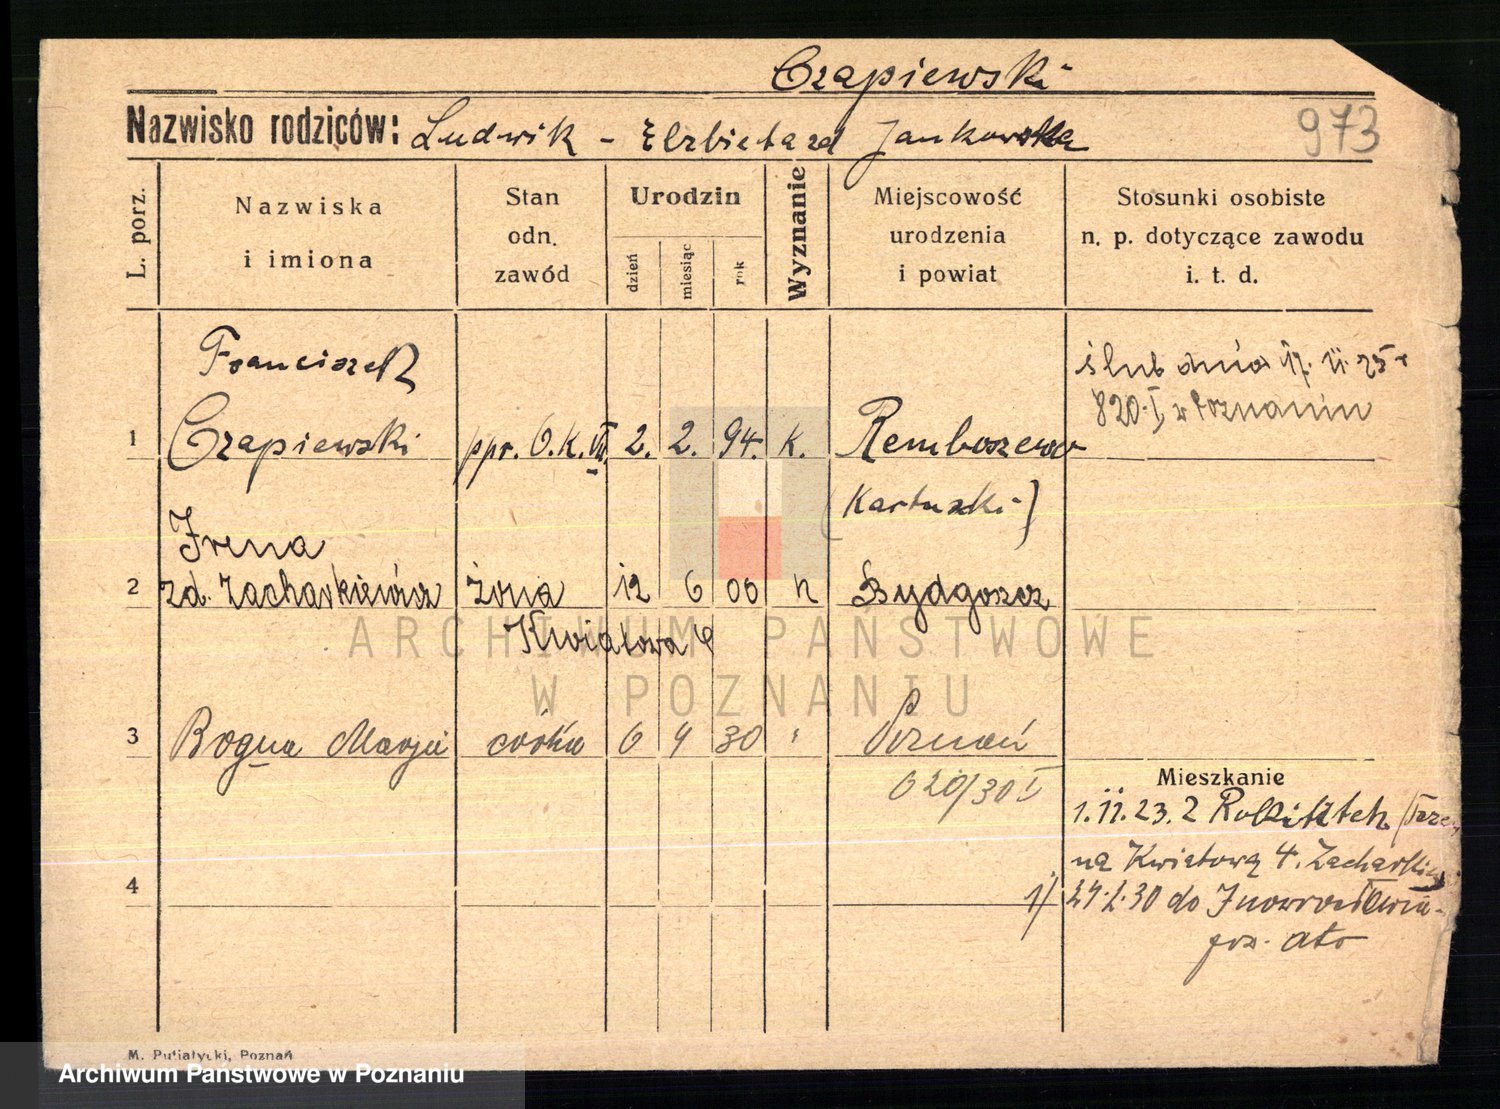 Czapiewski
Nazwisko rodziców: Ludwik - Elżbieta zd Jankowska
973
L. porz.
Nazwiska
i imiona
Stan
odn.
zawód
Urodzin
dzień
miesiąc
rok
Wyznanie
Miejscowość
urodzenia
i powiat
Stosunki osobiste
n. p. dotyczące zawodu
i. t. d.
Franciszek
ślub dnia 17. II. 25 r
820 I, w Poznaniu
1 Czapiewski ppr. O.K.VII. 2. 2. 94. k. Remboszewo
(Kartuski)
Irena
2 zd. Zacharkiewicz żona 12 6 00 k Bydgoszcz
Kwiatowa 4
3 Bogna Marja córka 6 4 30 " Poznań
620/30 I
Mieszkanie
1. 11. 23. z
na Kwiatową 4.
4
1) 24. 2. 30 do Inowrocławia
M. Putiatycki, Poznań
ARCHIWUM PAŃSTWOWE
W POZNANIU
Archiwum Państwowe w Poznaniu